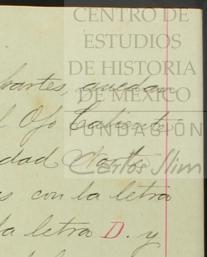 CENTRO DE
ESTUDIOS
DE HISTORIA
DE MÉXICO
FUNDACIÓN
Carlos Slim
partes, quedan
l Ojo Caliente
dad Norte
s con la letra
la letra D. y